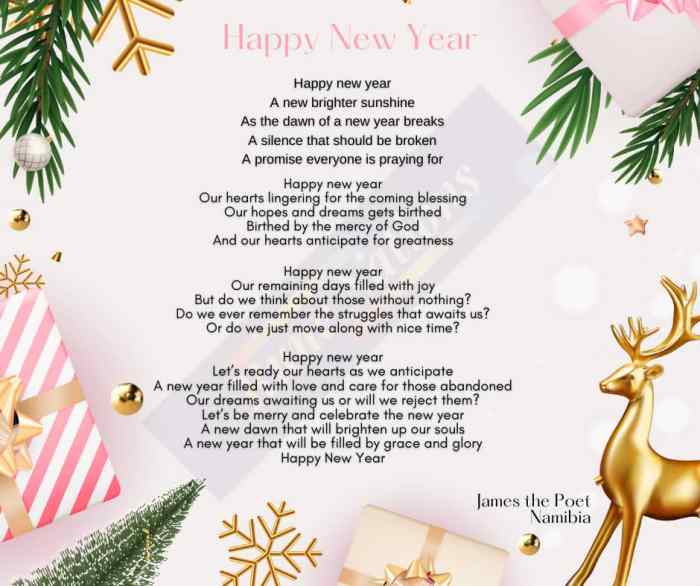 Happy New Year
Happy new year
A new brighter sunshine
As the dawn of a new year breaks
A silence that should be broken
A promise everyone is praying for
Happy new year
Our hearts lingering for the coming blessing
Our hopes and dreams gets birthed
Birthed by the mercy of God
And our hearts anticipate for greatness
Happy new year
Our remaining days filled with joy
But do we think about those without nothing?
Do we ever remember the struggles that awaits us?
Or do we just move along with nice time?
Happy new year
Let's ready our hearts as we anticipate
A new year filled with love and care for those abandoned
Our dreams awaiting us or will we reject them?
Let's be merry and celebrate the new year
A new dawn that will brighten up our souls
A new year that will be filled by grace and glory
Happy New Year
James the Poet
Namibia